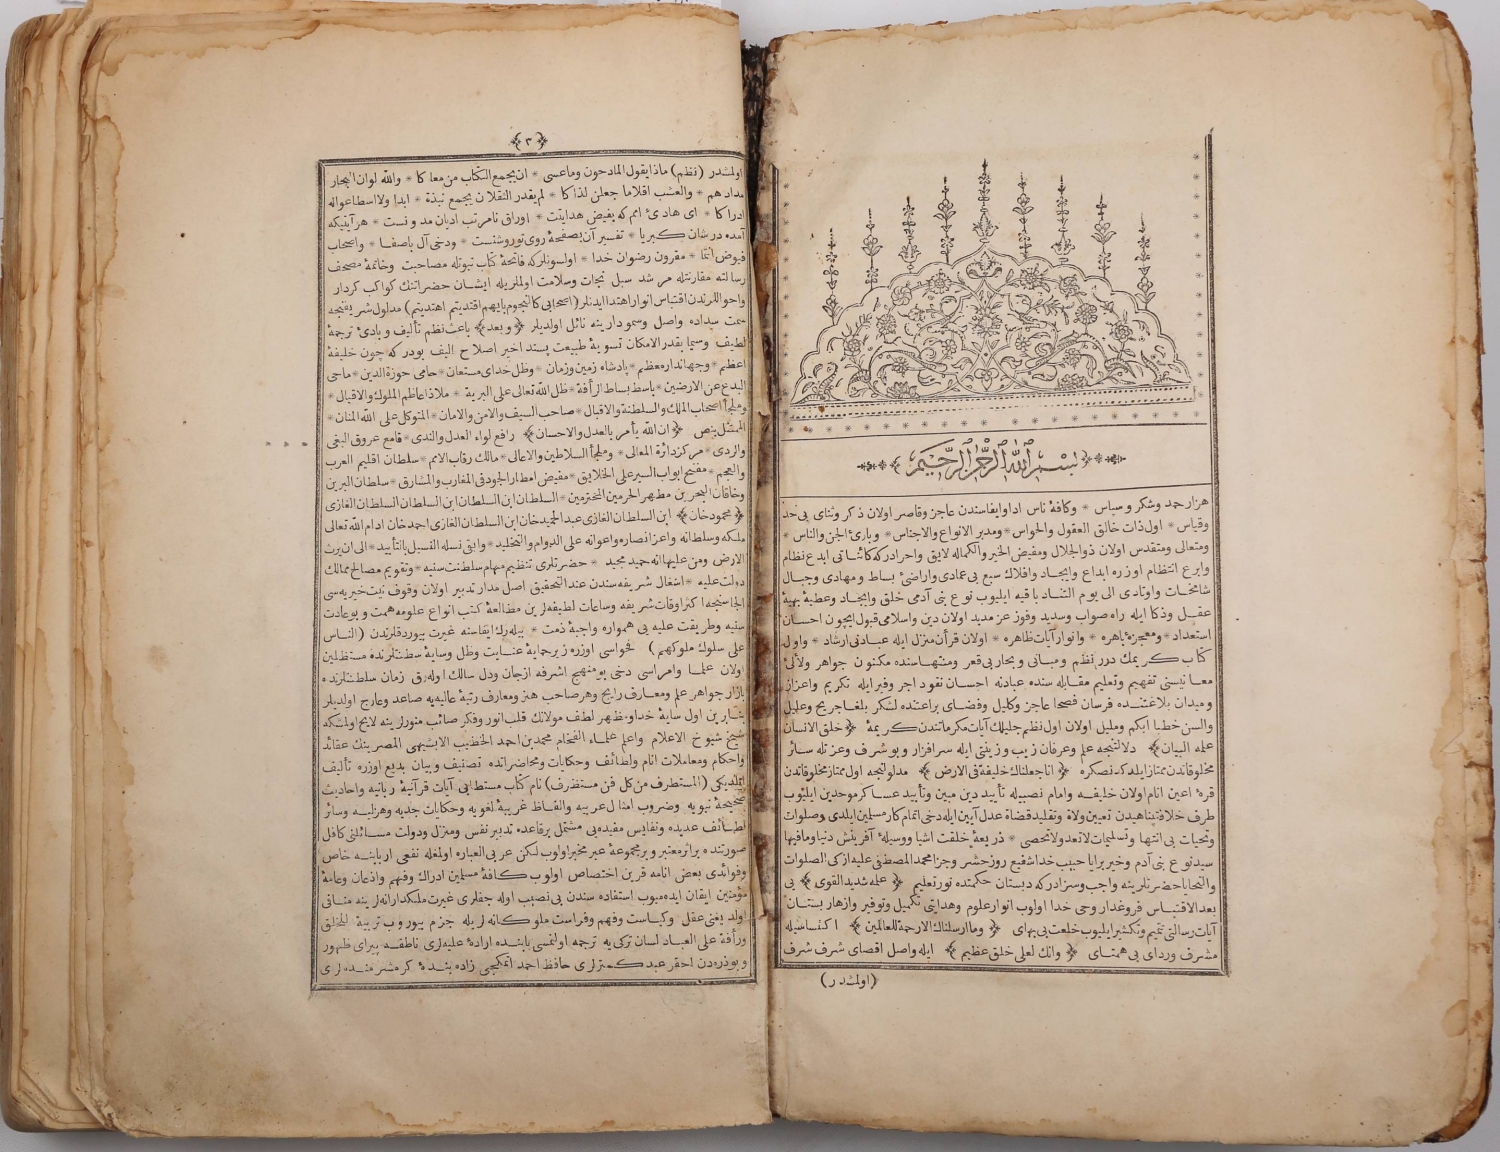 بسم الله الرحمن الرحيم
هزار حمد وشكر وسپاس * وكافۀ ناس ادا وايفاسندن عاجز وقاصر اولان ذكر وثناى بى حد
وقياس * اول ذات خالق العقول والحواس * ومدبر الانواع والاجناس * وبارئ الجن والناس *
ومتعالى ومتقدس اولان ذو الجلال ومفيض الخير والكماله لايق واحرادر كه كائناتى ابدع نظام
وابرع انتظام اوزره ابداع وايجاد وافلاك سبع بى عمادى واراضئ بساط و مهادى وجبال
شامخات واوتادى الى يوم التناد باقيه ايليوب نوع بنى آدمى خلق وايجاد وعطيۀ بهيۀ
عقل وذكا ايله راه صواب وسديد وفوز عز مديد اولان دين واسلامى قبول ايچون احسان
استعداد * ومعجزۀ باهره * وانوار آيات ظاهره * اولان قرآن منزل ايله عبادنى ارشاد * واول
كتاب كريمك درر نظم ومبانى وبحار بى قعر ومنتهاسنده مكنون جواهر ولآلئ
معانيسنى تفهيم وتعليم مقابله سنده عبادنه احسان نقود اجر وفير ايله تكريم واعزاز
وميدان بلاغتنده فرسان فصحا عاجز وكليل وفضاى براعتنده لشكر بلغا جريح وعليل
والسن خطبا ابكم ومليل اولان اول نظم جليلك آيات مكرماتندن كريمۀ ﴿ خلق الانسان
علمه البيان ﴾ دلالتيجه علم وعرفان زيب وزينتى ايله سرافراز وبو شرف وعزتله سائر
مخلوقاتدن ممتاز ايلدكدنصكره ﴿ انا جعلناك خليفة فى الارض ﴾ مدلولنجه اول ممتاز مخلوقاتدن
قرۀ اعين انام اولان خليفه وامام نصبيله تأييد دين مبين وتأييد عساكر موحدين ايليوب
طرف خلافتپناهيدن تعيين ولاة وتقليد قضاة عدل آيين ايله دخى اتمام كار مسلمين ايلدى وصلوات
وتحيات بى انتها وتسليمات لاتعد ولاتحصى * ذريعۀ خلقت اشيا ووسيلۀ آفرينش دنيا ومافيها
سيد نوع بنى آدم وخير برايا حبيب خدا شفيع روز حشر وجزا محمد المصطفى عليه ازكى الصلوات
والتحايا حضرتلرينه واجب وسزادر كه دبستان حكمتده نور تعليم ﴿ علمه شديد القوى ﴾ بى
بعد الاقتباس فروغدار وحى خدا اولوب انوار علوم وهدايتى تكميل وتوفير وازهار بستان
آيات رسالتى تتميم وتكثير ايليوب خلعت بى بهاى ﴿ وما ارسلناك الا رحمة للعالمين ﴾ اكتساسيله
مشرف ورداى بى همتاى ﴿ وانك لعلى خلق عظيم ﴾ ايله واصل اقصاى شرف شرف
(اولمشدر)
﴿٣﴾
اولمشدر (نظم) ماذا يقول المادحون وما عسى * ان يجمع الكتاب من معاكا * والله لو ان البحار
مدادهم * والعشب اقلاما جعلن لذاكا * لم يقدر الثقلان يجمع نبذة * ابدا ولا اسطاعوا له
ادراكا * اى هادئ امم كه بفيض هدايتت * اوراق نامرتب اديان مدونست * هر آيتيكه
آمده در شان كبريا * تفسير آن بصفحۀ روى تو روشنست * ودخى آل باصفا * واصحاب
فيوض انتما * مقرون رضوان خدا * اولسونلر كه فاتحۀ كتاب نبوتله مصاحبت وخاتمۀ مصحف
رسالته مقارنتله مرشد سبل نجات وسلامت اولملريله ايشان حضراتنك كواكب كردار
واحواللرندن اقتباس انوار اهتدا ايدنلر (اصحابى كالنجوم بايهم اقتديتم اهتديتم) مدلول شريفنجه
سمت سداده واصل وسمو دارينه نائل اولديلر ﴿ وبعد ﴾ باعث نظم تأليف وبادئ ترجمۀ
لطيف وسيما بقدر الامكان تسويۀ طبيعت پسند اخير اصلاح اليف بودر كه چون خليفۀ
اعظم * وجهاندار معظم * پادشاه زمين وزمان * وظل خداى مستعان * حامى حوزة الدين * ماحى
البدع عن الارضين * باسط بساط الرأفة * ظل الله تعالى على البرية * ملاذ اعاظم الملوك والاقيال *
وملجأ اصحاب الملك والسلطنة والاقبال * صاحب السيف والامن والامان * المتوكل على الله المنان *
الممتثل بنص ﴿ ان الله يأمر بالعدل والاحسان ﴾ رافع لواء العدل والندى * قامع عروق البغى
والردى * مركز دائرۀ المعالى * وملجأ السلاطين والاعالى * مالك رقاب الامم * سلطان اقليم العرب
والعجم * مفتح ابواب السير على الخلايق * مفيض امطار الجود فى المغارب والمشارق * سلطان البرين
وخاقان البحرين مطهر الحرمين المحترمين * السلطان ابن السلطان ابن السلطان السلطان الغازى
﴿ محمود خان ﴾ ابن السلطان الغازى عبد الحميد خان ابن السلطان الغازى احمد خان ادام الله تعالى
ملكه وسلطانه واعز انصاره واعوانه على الدوام والتخليد * وابقى نسله الفسيل بالتأييد * الى ان يرث
الارض ومن عليها انه حميد مجيد * حضرتلرى تنظيم مهام سلطنت سنيه * وتقويم مصالح ممالك
دولت عليه * اشغال شريفه سندن عند التحقيق اصل مدار تدبير اولان وقوف نيت خيريه سى
الجاسنجه اكثر اوقات شريفه وساعات لطيفه لرين مطالعۀ كتب انواع علومه همت وبو عادت
سنيه وطريقت عليه يى همواره واجبۀ ذمت * بيله رك ايفاسنه غيرت بيوردقلرندن (الناس
على سلوك ملوكهم) فحواسى اوزره زير حمايۀ عنايت وظل وسايۀ سطنتلرنده مستظلين
اولان علما وامراسى دخى بو منهج اشرفه ازجان ودل سالك اوله رق زمان سلطنتلرنده
بازار جواهر علم ومعارف رايج وهر صاحب هنر ومعارف رتبۀ عاليه يه صاعد وعارج اولديلر
بناء برين اول سايۀ خدا ومظهر لطف مولانك قلب انور وفكر صائب منورلرينه لايح اولمشكه
شيخ شيوخ الاعلام واعلم علماء الفخام محمد بن احمد الخطيب الابشيهى المصرينك عقائد
واحكام ومعاملات انام ولطائف وحكايات ومحاضراتده تصنيف وبيان بديع اوزره تأليف
ايلديكى (المستطرف من كل فن مستظرف) نام كتاب مستطابى آيات قرآنيۀ ربانيه واحاديث
صحيحۀ نبويه وضروب امثال عربيه والفاظ غريبۀ لغويه وحكايات جديه وهزليه وسائر
لطائف عديده ونفايس مفيده يى مشتمل بر قاعده تدبير نفس ومنزل ودولت مسائلنى كافل
صورتنده براثر معتبر وبر مجموعۀ عبر مخبر اولوب لكن عربى العباره اولمغله نفعى اربابنه خاص
وفوائدى بعض انامه قرين اختصاص اولوب كافۀ مسلمين ادراك وفهم واذعان وعامۀ
مؤمنين ايقان ايده ميوب استفاده سندن بى نصيب اوله جقلرى غيرت ملكدارانه لرينه منافى
اولديغنى عقل وكياست وفهم وفراست ملوكانه لريله جزم بيوروب تربية للخلق
ورأفة على العباد لسان تركى يه ترجمه اولنمسى بابنده ارادۀ عليه لرى ناطقه پيراى ظهور
وبو ذره دن احقر عبد كمترلرى حافظ احمد اتمكجى زاده بنده كرمشرمنده لرى